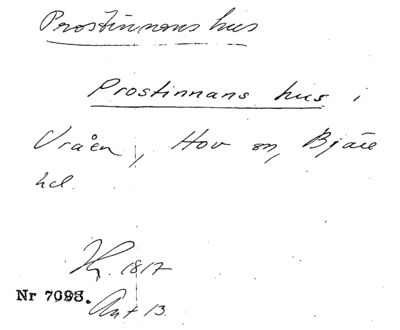 Prostinnans hus
Prostinnans hus i
Vråen, Hov sn, Bjäre
hd.
Hz. 1817
Nr 7093.
Ant 13.